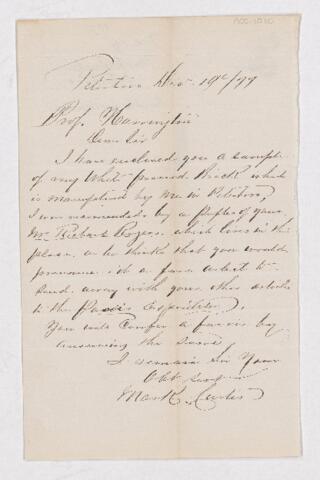 Dec 19th/77
Prof. Harrington
Dear Sir
I have enclosed you a sample
of my White pressed Brick which
is manufactured by me in
I was recommended by a Pupil of yours
Mr Richard Rogers, which lives in this
place, as he thinks that you would
pronounce it a fare article to
send away with your other articles
to the Paris Exposition,
You will Confer a favor by
answering the same
I remain Sir Your
Obt
Mark Curtis